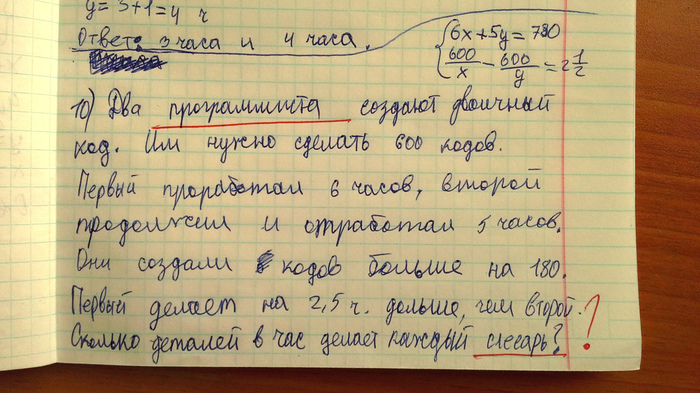 y = 3+1=4 ч
Ответ: 3 часа и 4 часа.
6x+5y=780
600/x - 600/y = 2 1/2
10) Два программиста создают двоичный
код. Им нужно сделать 600 кодов.
Первый проработал 6 часов, второй
продолжил и отработал 5 часов.
Они создали кодов больше на 180.
Первый делает на 2,5 ч. дольше, чем второй.
Сколько деталей в час делает каждый слесарь? !